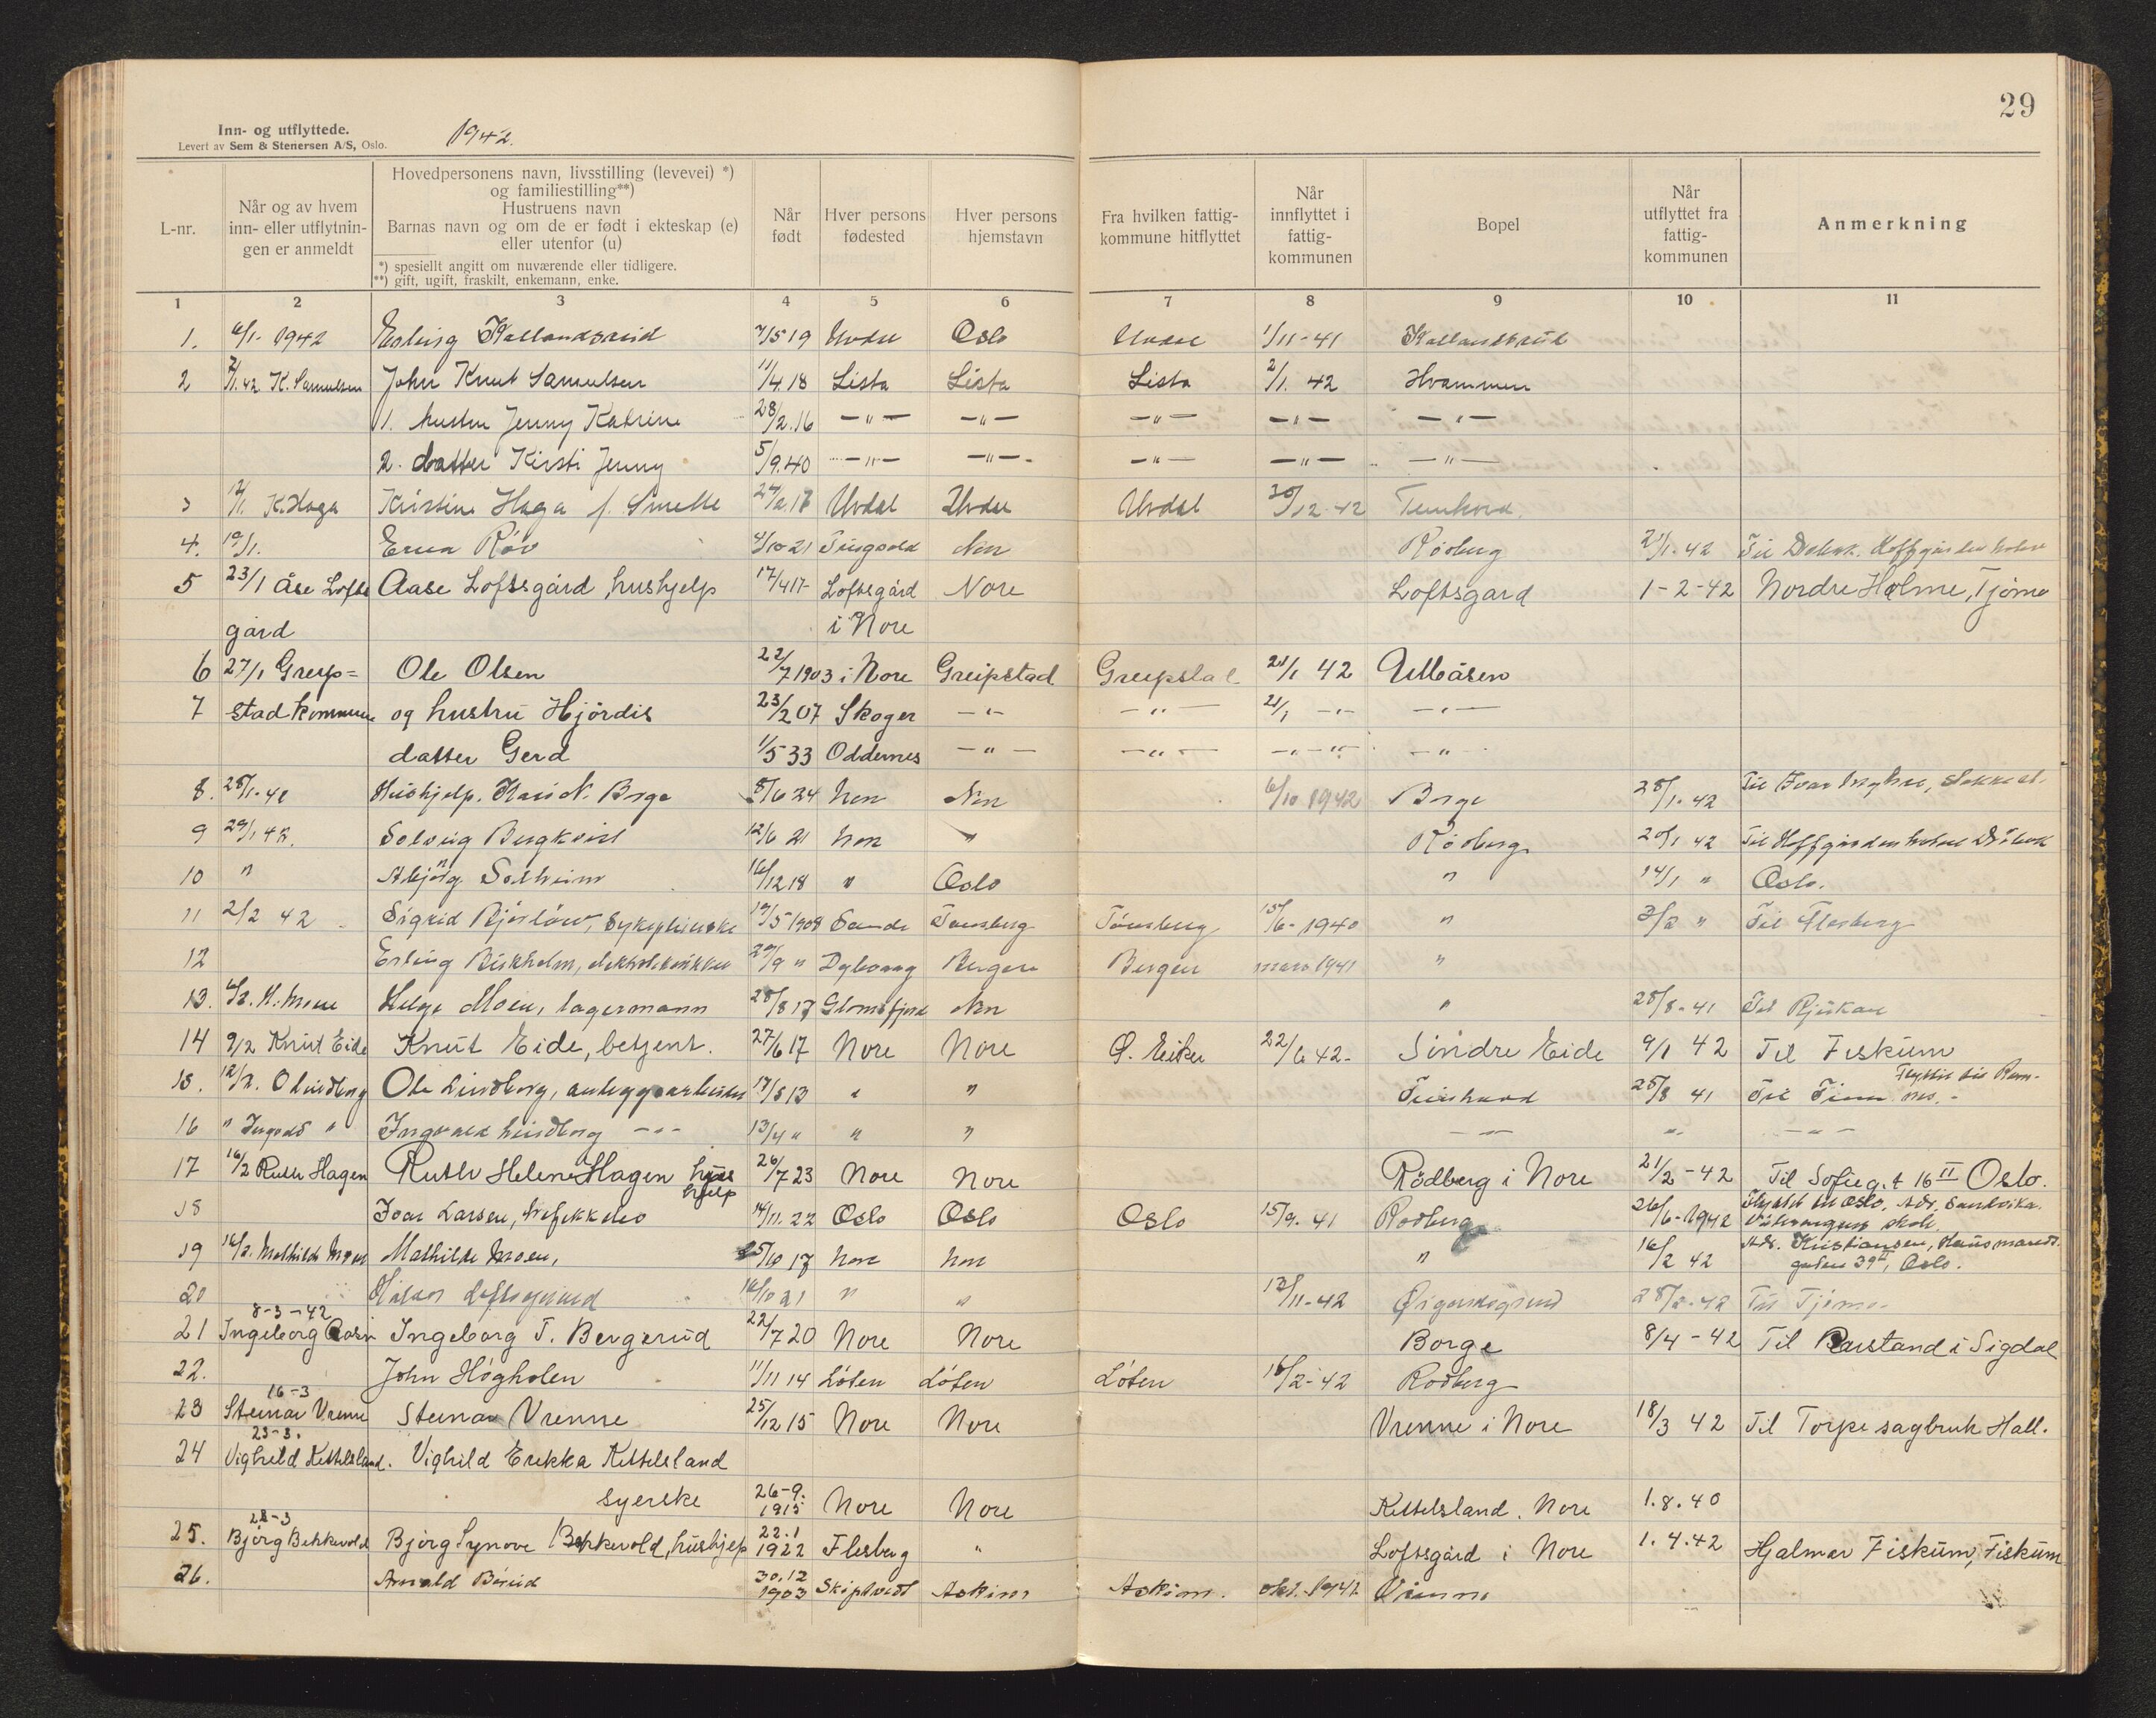 29
Inn- og utflyttede.
Levert av Sem & Stenersen A/S, Oslo.
1942.
L-nr.
Når og av hvem inn- eller utflytnin- gen er anmeldt
Hovedpersonens navn, livsstilling (levevei) *) og familiestilling**) Hustruens navn Barnas navn og om de er født i ekteskap (e) eller utenfor (u)
*) spesiellt angitt om nuværende eller tidligere.
**) gift, ugift, fraskilt, enkemann, enke.
Når født
Hver persons fødested
Hver persons hjemstavn
Fra hvilken fattig- kommune hitflyttet
Når innflyttet i fattig- kommunen
Bopel
Når utflyttet fra fattig- kommunen
Anmerkning
1 2 3 4 5 6 7 8 9 10 11
1. 6/1- 1942 7/5 19 Uvdal Oslo Uvdal 1/11-41
2 2/1.42 K. Samuelsen John Knut Samuelsen 11/4.18 Lista Lista Lista 2/1. 42 Hvammen
1. hustru Jenny Katrine 28/2.16 —"— —"— —"— —"— —"—
2. datter Kirsti Jenny 5/9.40 —"— —"— —"— —"— —"—
3 12/1. K. Haga Kristine Haga f. Smette Uvdal Uvdal Uvdal 30/12-42
4. 19/1. 4/10 21 Nore Rödberg 21/1-42
5 23/1 Åse Lofts Aase Loftsgård, hushjelp 17/4 17- Loftsgård Nore Loftsgard 1-2-42 Nordre Holme, Tjömø
gård i Nore
6 27/1 Greip= Ole Olsen 22/7 1903 i Nore Greipstad Greipstad 21/1 42 Ullåsen
7 stad kommune og hustru Hjördis 23/2 07 Skoger —"— —"— 21/1 —"— —"—
datter Gerd 1/5 33 Oddernes —"— —"— —"— —"—
8. 28/1-42 Hushjelp. Kari N. Borge 8/6 24 Nore Nore 6/10 1942 Borge 28/1-42
9 29/1 42. Solveig Bergkvist 12/6 21 Nore " Rödberg 20/1 42
10 " Solheim 16/12 18 " Oslo " 14/1 " Oslo.
11 2/2 42 Sigrid 19/5 1908 Sande Tönsberg Tönsberg 15/6-1940 " 3/2 " Til Flesberg
12 Erling Birkholm, 29/9 " Bergen Bergen mars 1941 "
13. 6/2. H. Moen Helge Moen, lagermann 28/8 17 Glomfjord Nore " 28/8-41 Til Rjukan
14 9/2 Knut Eide Knut Eide, betjent. 27/6 17 Nore Nore Ö. Eiker 22/6 42- Sindre Eide 9/1 42 Til Fiskum
15. 12/2. O Lindborg Ole Lindborg, anleggsarbeider 17/5 13 " " 25/8 41 Til Tinn
16 " " Ingvald Lindborg —"— 13/4 " " " —"— "
17 16/2 Ruth Hagen Ruth Helene Hagen hus hjelp 26/7 23 Nore Nore Rödberg i Nore 21/2-42 Til Sofieg.t 16 II Oslo.
18 Ivar Larsen, 14/11.22 Oslo Oslo Oslo 15/9-41 Rödberg 26/6-1942 Flyttet til Oslo, Adr. Sandvika.
19 16/2. Mathilde Moen Mathilde Moen, 25/10 17 Nore Nore " 16/2 42 Adr. Kristiansen, Hausmanns gaten 39 II, Oslo.
20 Håkon Loftsgaard 16/10 21 " " 12/11-42 28/2-42 Til Tjömø
8-3-42
21 Ingeborg T. Bergerud 22/7 20 Nore Nore Borge 8/4-42 Til Baustand i Sigdal
22. John Högholen 11/11 14 Löten Löten Löten 16/2-42 Rödberg
16-3
23 Steinar Vrenne Steinar Vrenne 25/12 15 Nore Nore Vrenne i Nore 18/3 42 Til Torpe sagbruk Hall.
23-3.
24 Vighild Kittelsland. Vighild Erekka Kittelsland
syerske 26-9. 1915 Nore Nore Kittelsland. Nore 1.8.40
28-3
25. Bjørg Bekkevold Bjørg Synøve Bekkevold, hushjelp 22.1 1922 Flesberg " Loftsgård i Nore 1.4.42 Hjalmar Fiskum, Fiskum
26. Arnold 30.12 1903 Skiptvedt Askim Askim. okt. 1941